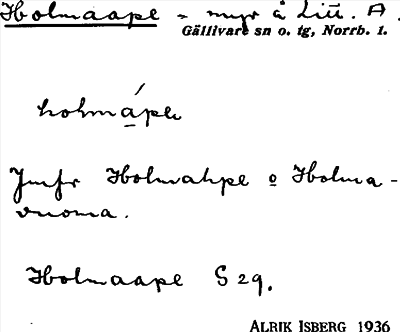 Holmaape - myr å Litt. A.
Gällivare sn o. tg, Norrb. l.
holmápe
Jmfr Holmahpe o Holma-
vuoma.
Holmaape S 29.
ALRIK ISBERG 1936